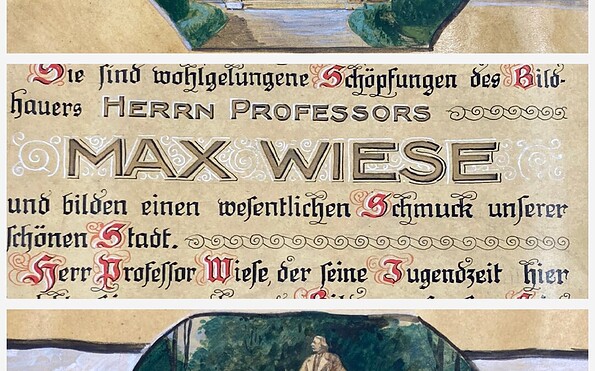 Sie sind wohlgelungene Schöpfungen des Bild-
hauers HERRN PROFESSORS
MAX WIESE
und bilden einen wesentlichen Schmuck unserer
schönen Stadt.
Herr Professor Wiese, der seine Jugendzeit hier